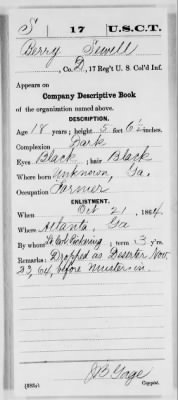 S 17 U.S.C.T.
Berry Sewell
, Co. D, 17 Reg't U. S. Col'd Inf.
Appears on
Company Descriptive Book
of the organization named above.
DESCRIPTION.
Age 18 years; height 5 feet 6½ inches.
Complexion Dark
Eyes Black; hair Black
Where born Unknown, Ga.
Occupation Farmer
ENLISTMENT.
When Oct 21, 1864.
Where Atlanta, Ga
By whom Lt Col Pickering; term 3 y'rs.
Remarks: Dropped as Deserter Nov.
23, 64, before Muster in.
J B Gage
Copyist.